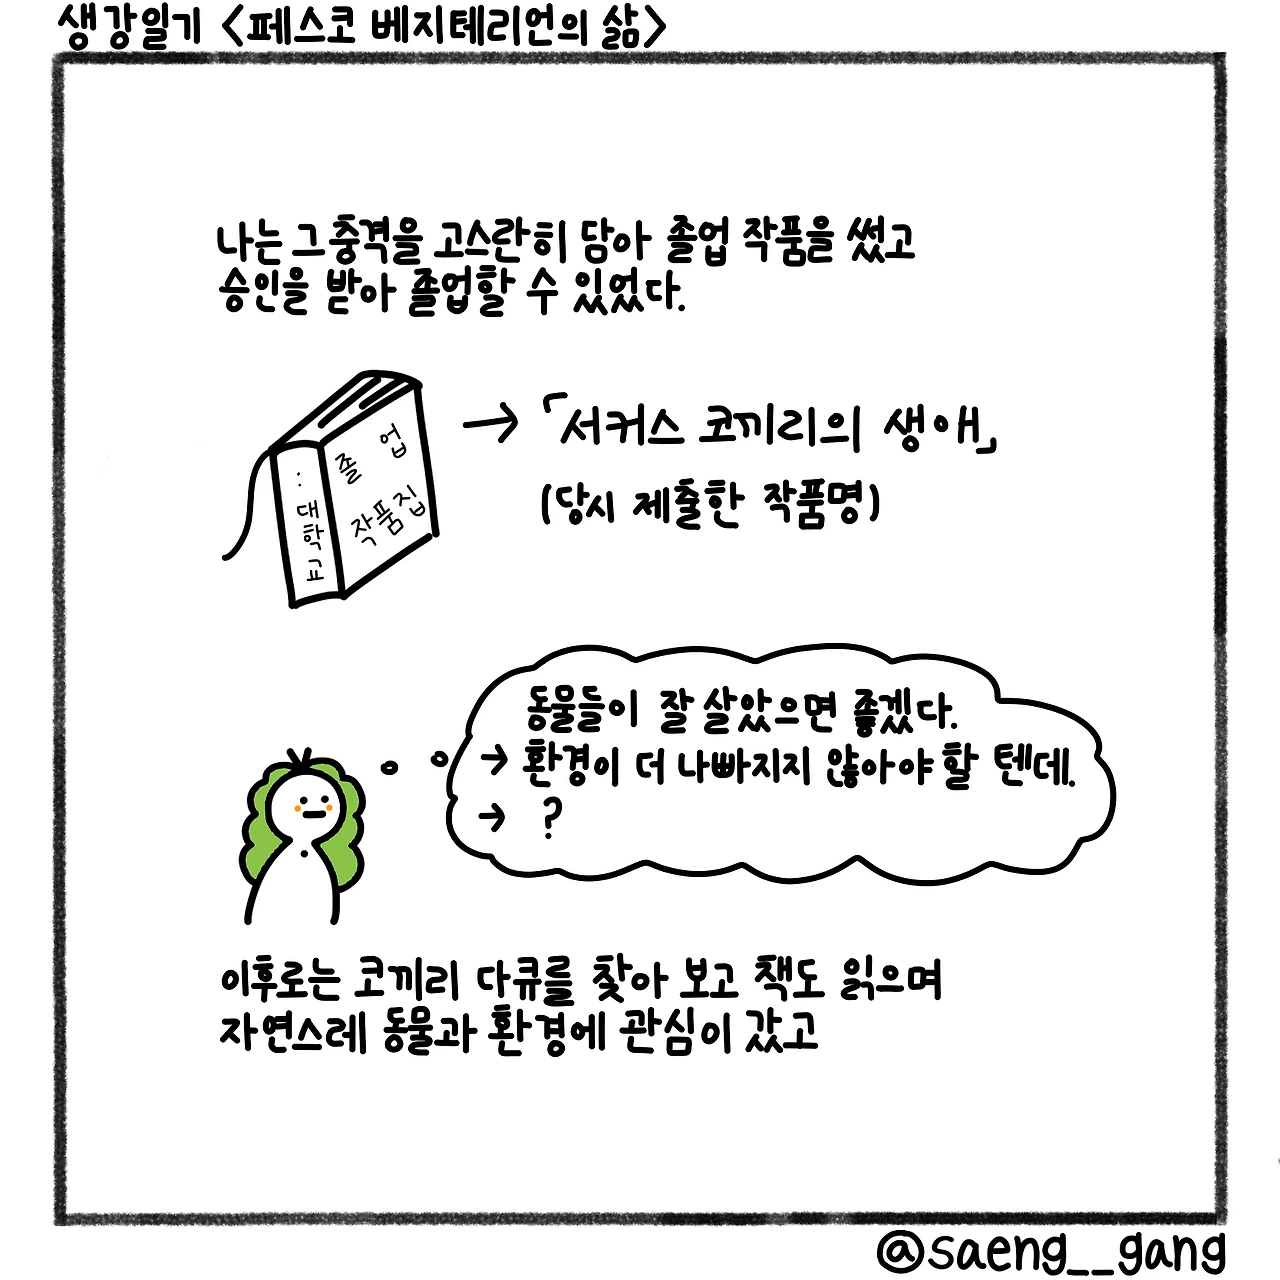 생강일기 <페스코 베지테리언의 삶>
나는 그 충격을 고스란히 담아 졸업 작품을 썼고
승인을 받아 졸업할 수 있었다.
졸업
작품집
: 대학교
→ 「서커스 코끼리의 생애」
(당시 제출한 작품명)
동물들이 잘 살았으면 좋겠다.
→ 환경이 더 나빠지지 않아야 할 텐데.
→ ?
이후로는 코끼리 다큐를 찾아 보고 책도 읽으며
자연스레 동물과 환경에 관심이 갔고
@saeng__gang